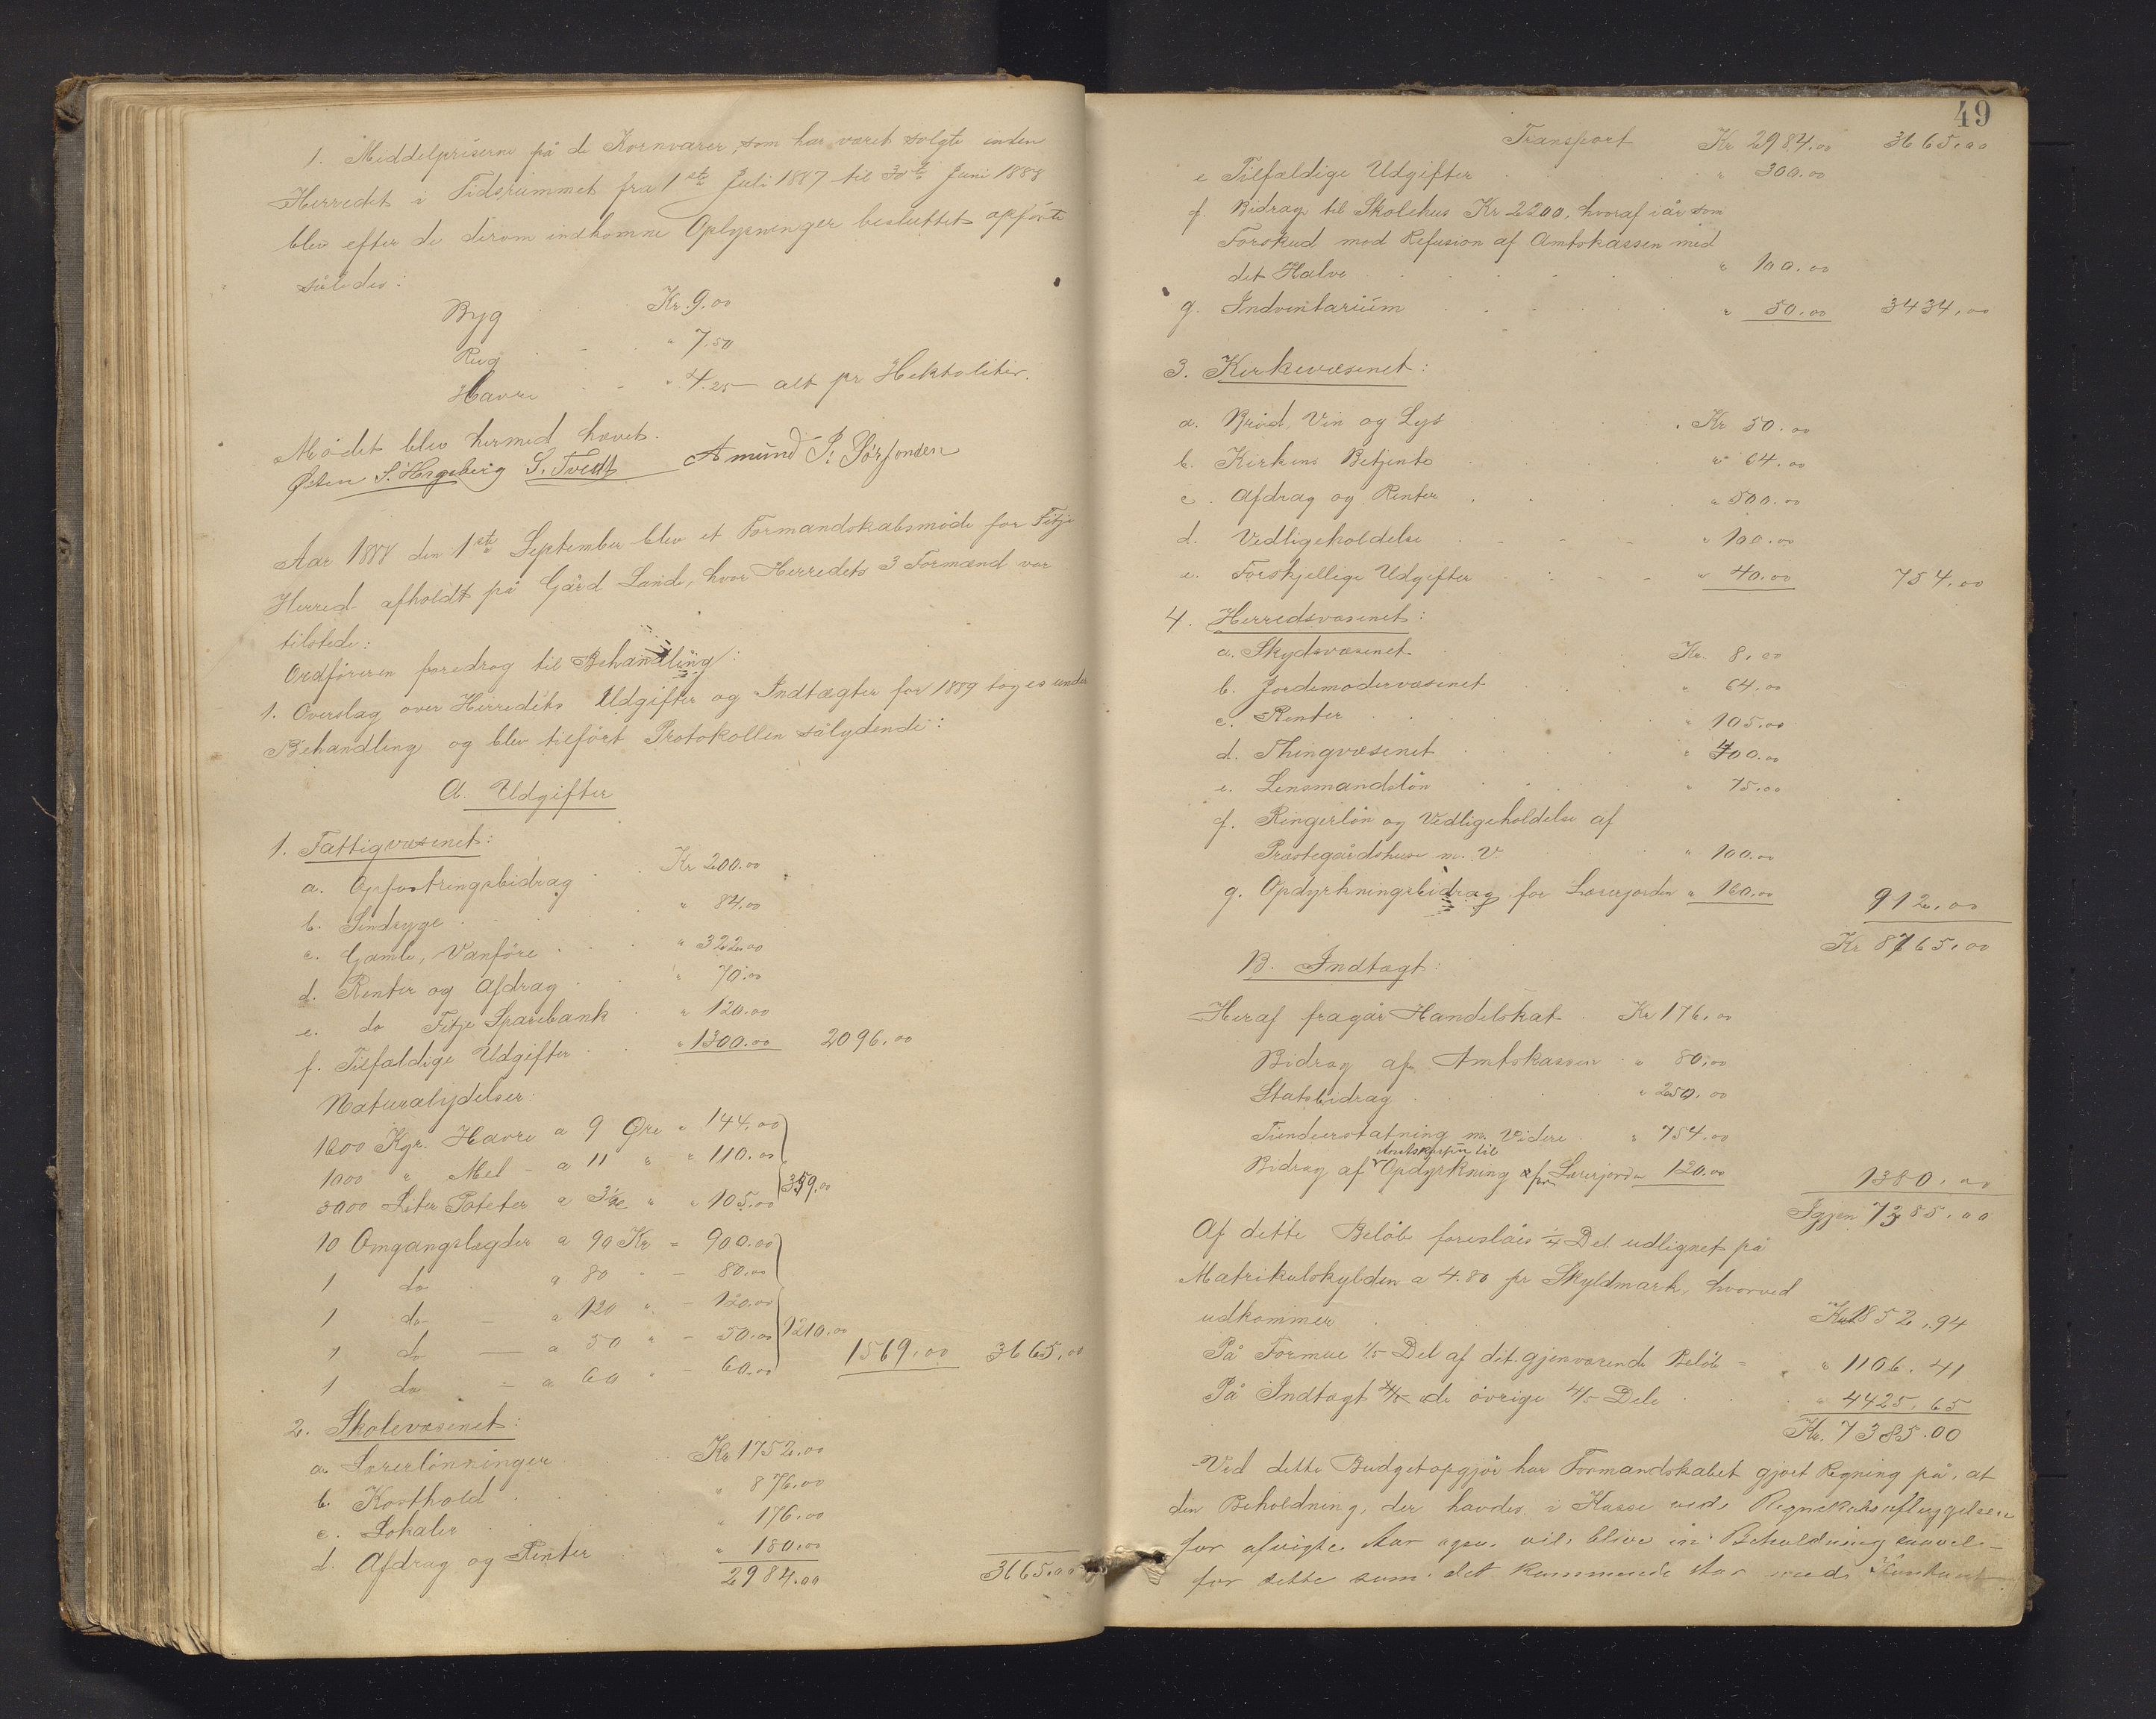 1. Middelpriserne på de Kornvarer, som har været solgte inden
Herredet i Tidsrummet fra 1ste Juli 1887 til 30te Juni 1888
blev efter de derom indkomne Oplysninger besluttet opførte
således:
Byg Kr. 9.00
Rug " 7.50
Havre " 4.25 alt pr Hektoliter.
Mødet blev hermed hævet.
Østen S. Hageberg S. Tvedt Amund P. Sørfonden
Aar 1888 den 1ste September blev et Formandskabsmøde for Fitje
Herred afholdt på Gård Lande, hvor Herredets 3 Formænd var
tilstede:
Ordføreren foredrog til Behandling:
1. Overslag over Herredets Udgifter og Indtægter for 1889 toges under
Behandling og blev tilført Protokollen sålydende:
A. Udgifter
1. Fattigvæsenet:
a. Opfostringsbidrag Kr 200.00
b. Sindsyge " 84.00
c. Gamle, Vanføre " 322.00
d. Renter og Afdrag " 70.00
e. do Fitje Sparebank " 120.00
f. Tilfældige Udgifter " 1300.00 2096.00
Naturalydelser:
1600 Kgr. Havre a 9 Øre " 144.00
1000 " Mel - a 11 " " 110.00
3000 Liter Poteter a 3½ " " 105.00 359.00
10 Omgangslægder a 90 Kr = 900.00
1 do a 80 " - 80.00
1 do - a 120 " - 120.00
1 do — a 50 " - 50.00 1210.00
1 do - a 60 " 60.00 1569.00 3665.00
2. Skolevæsenet:
a. Lærerlønninger Kr 1752.00
b. Kosthold " 876.00
c. Lokaler " 176.00
d. Afdrag og Renter " 180.00
2984.00 3665.00
49
Transport Kr 2984.00 3665.00
e Tilfældige Udgifter " 300.00
f. Bidrag til Skolehus Kr 2200, hvoraf iår som
Forskud mod Refusion af Amtskassen med
det Halve " 100.00
g. Indventarium " 50.00 3434.00
3. Kirkevæsenet:
a. Brød, Vin og Lys Kr 50.00
b. Kirkens Betjente " 64.00
c. Afdrag og Renter " 500.00
d. Vedligeholdelse " 100.00
e. Forskjellige Udgifter " 40.00 754.00
4. Herredsvæsenet:
a. Skydsvæsenet Kr. 8.00
b. Jordemodervæsenet " 64.00
c. Renter " 105.00
d. Thingvæsenet " 400.00
e. Lensmandsløn " 75.00
f. Ringerløn og Vedligeholdelse af
Præstegårdshuse m. V. " 100.00
g. Opdyrkningsbidrag for Lærerjorden " 160.00 912.00
Kr 8765.00
B. Indtægt:
Heraf fragår Handelskat Kr 176.00
Bidrag af Amtskassen " 80.00
Statsbidrag " 250.00
Tiendeerstatning m. Videre " 754.00
Amtskassen til
Bidrag af Opdyrkning af Lærerjorden 120.00 1380.00
Igjen 7385.00
Af dette Beløb foreslåes ¼ Del udlignet på
Matrikulskylden a 4.80 pr Skyldmark, hvorved
udkommer Kr 1852.94
På Formue 1/5 Del af det gjenværende Beløb " 1106.41
På Indtægt de øvrige 4/5 Dele " 4425.65
Kr. 7385.00
Ved dette Budgetopgjør har Formandskabet gjort Regning på, at
den Beholdning, der havdes i Kasse ved Regnskabsaflæggelsen
for afvigte Aar vil blive in Beholdning saavel
for dette som det kommende Aar med